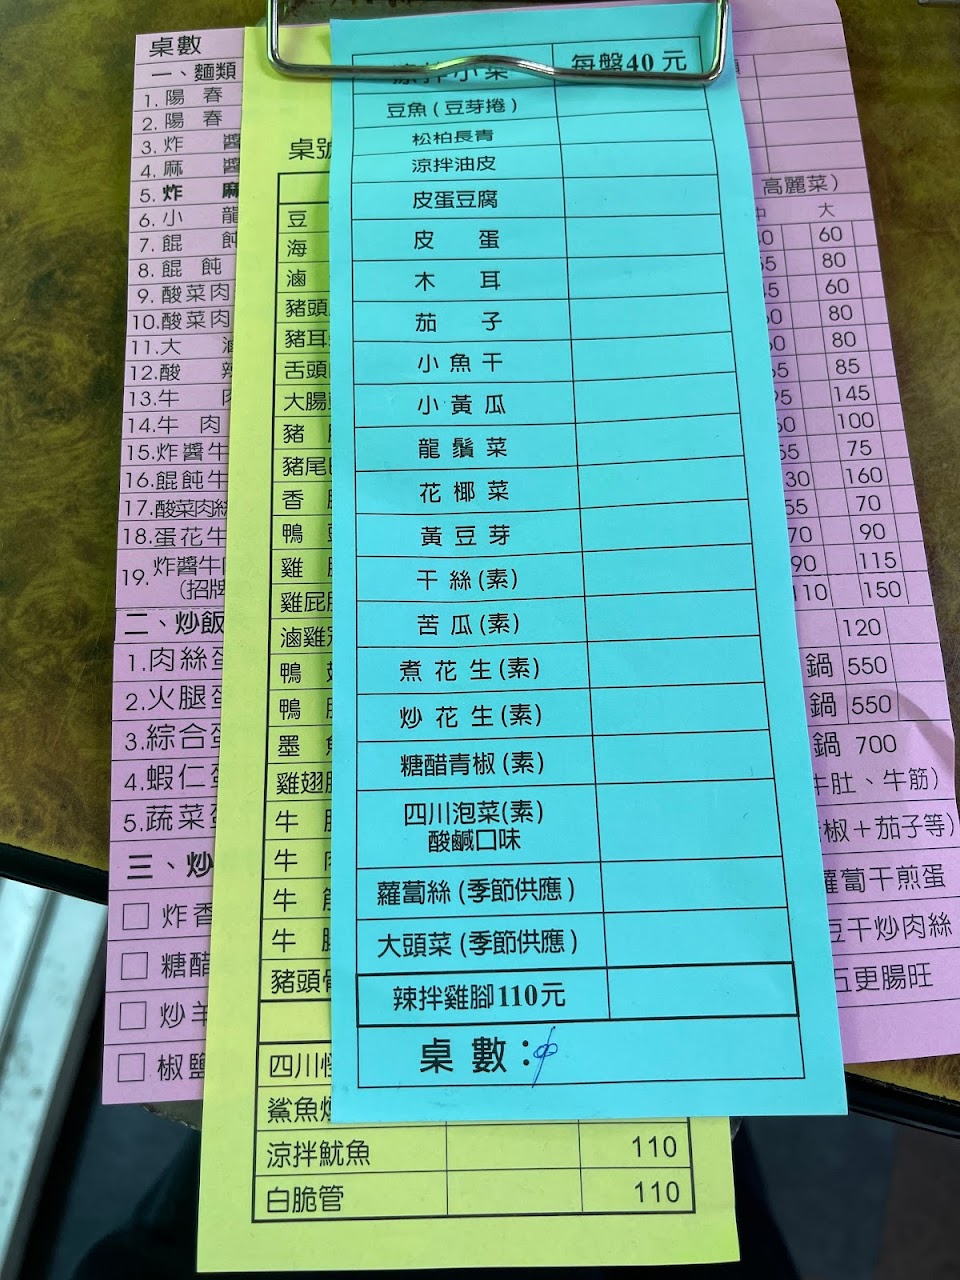 桌數
一、麵類
1. 陽 春
2. 陽 春
3. 炸 醬
4. 麻 醬
5. 炸 麻
6. 小 龍
7. 餛 飩
8. 餛 飩
9. 酸菜肉
10.酸菜肉
11.大 滷
12.酸 辣
13.牛 肉
14.牛 肉
15.炸醬牛
16.餛飩牛
17.酸菜肉絲
18.蛋花牛
19.炸醬牛肉
(招牌
二、炒飯
1.肉絲蛋
2.火腿蛋
3.綜合蛋
4.蝦仁蛋
5.蔬菜蛋
三、炒
□ 炸香
□ 糖醋
□ 炒羊
□ 椒鹽
桌號
豆
海
滷
豬頭
豬耳
舌頭
大腸
豬
豬尾
香
鴨
雞
雞屁
滷雞
鴨
鴨
墨
雞翅
牛
牛
牛
牛
豬頭
四川
鯊魚
涼拌魷魚 110
白脆管 110
涼拌小菜 每盤40元
豆魚(豆芽捲)
松柏長青
涼拌油皮
皮蛋豆腐
皮 蛋
木 耳
茄 子
小魚干
小黃瓜
龍鬚菜
花椰菜
黃豆芽
干絲(素)
苦瓜(素)
煮花生(素)
炒花生(素)
糖醋青椒(素)
四川泡菜(素)
酸鹹口味
蘿蔔絲(季節供應)
大頭菜(季節供應)
辣拌雞腳110元
桌數:
高麗菜)
中 大
60
80
60
80
80
85
145
100
75
30 160
55 70
70 90
90 115
110 150
120
鍋 550
鍋 550
鍋 700
牛肚、牛筋)
椒+茄子等)
蘿蔔干煎蛋
豆干炒肉絲
五更腸旺